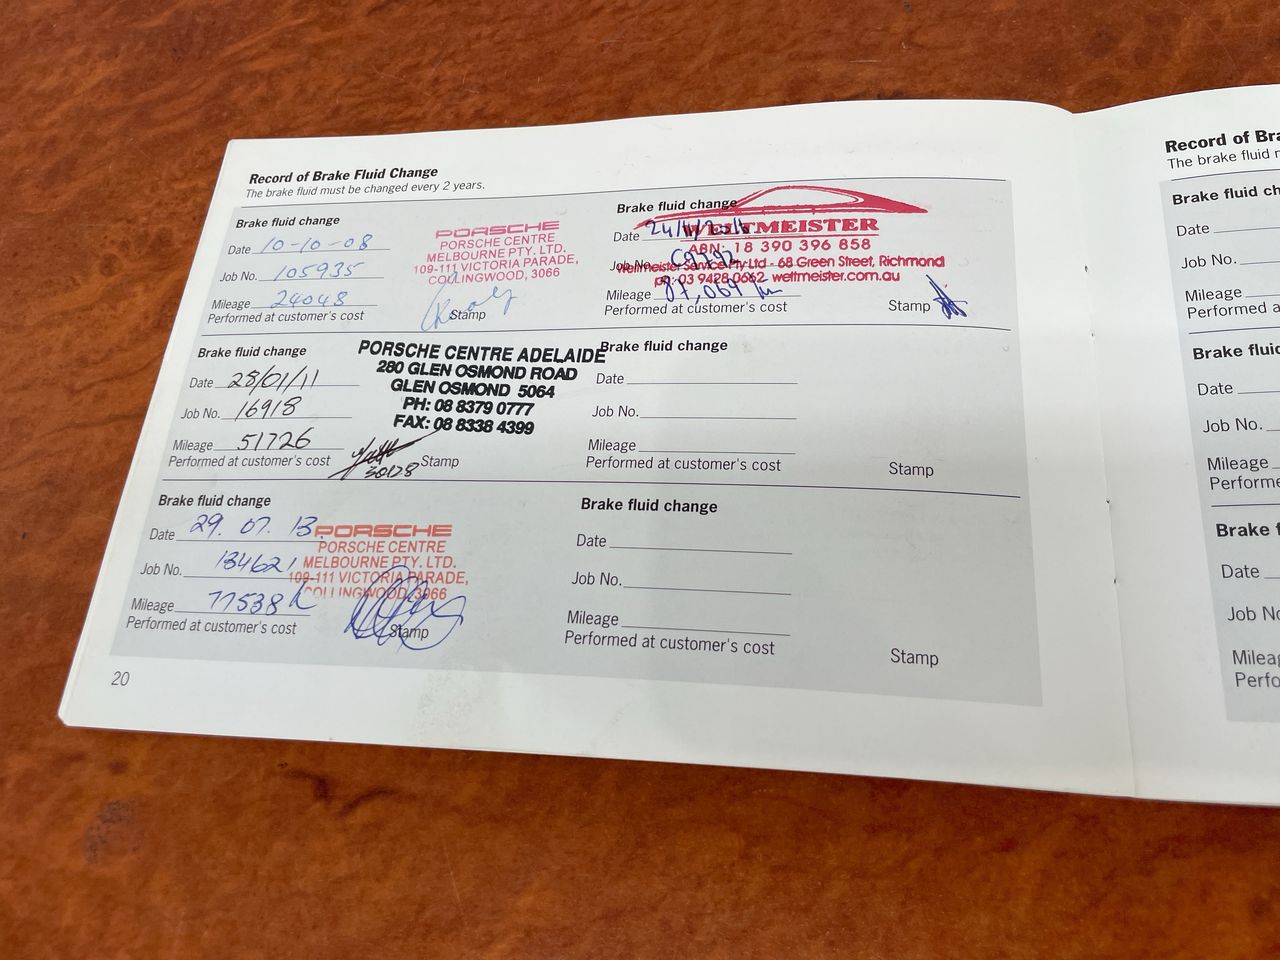 Record of Brake Fluid Change
The brake fluid must be changed every 2 years.
Brake fluid change
Date 10-10-08
Job No. 105935
Mileage 24048
Performed at customer's cost
PORSCHE
PORSCHE CENTRE
MELBOURNE PTY. LTD.
109-111 VICTORIA PARADE,
COLLINGWOOD, 3066
Stamp
Brake fluid change
Date 28/01/11
Job No. 16918
Mileage 51726
Performed at customer's cost
PORSCHE CENTRE ADELAIDE
280 GLEN OSMOND ROAD
GLEN OSMOND 5064
PH: 08 8379 0777
FAX: 08 8338 4399
Stamp
Brake fluid change
Date 29. 07. 13
Job No. 134621
Mileage 77538
Performed at customer's cost
PORSCHE
PORSCHE CENTRE
MELBOURNE PTY. LTD.
109-111 VICTORIA PARADE,
COLLINGWOOD, 3066
Stamp
20
Brake fluid change
Date
Job No.
Mileage 87,064 km
Performed at customer's cost
WELTMEISTER
ABN: 18 390 396 858
Weltmeister Service Pty Ltd - 68 Green Street, Richmond
ph: 03 9428 0662 weltmeister.com.au
Stamp
Brake fluid change
Date
Job No.
Mileage
Performed at customer's cost
Stamp
Brake fluid change
Date
Job No.
Mileage
Performed at customer's cost
Stamp
Record of
The brake fluid
Brake fluid
Date
Job No.
Mileage
Performed
Brake
Date
Job No.
Mileage
Brake
Date
Job